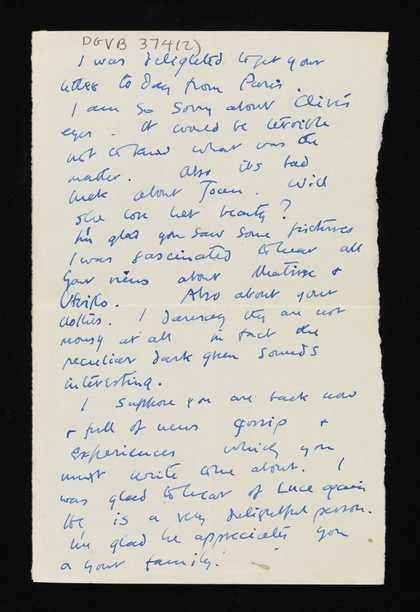 DGVB 374(2)
I was delighted to get your
letter to day from Paris.
I am so sorry about Clive's
eyes. It would be terrible
not to know what was the
matter. Also its bad
luck about Joan. Will
she lose her beauty?
I'm glad you saw some pictures
I was fascinated to hear all
your views about Matisse &
Utrillo. Also about your
clothes. I daresay they are not
at all in fact the
peculiar dark green sounds
interesting.
I suppose you are back now
& full of news gossip &
experiences which you
must write me about. I
was glad to hear of again
He is a very delightful person.
I'm glad he appreciates you
& your family.